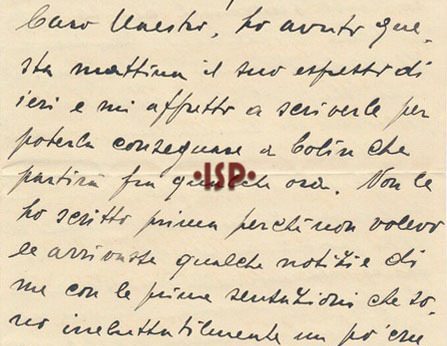 Caro Maestro, ho avuto que-
sta mattina il suo espresso di
ieri e mi affretto a scriverle per
poterla consegnare a Colin che
partirà fra qualche ora. Non le
ho scritto prima perché non volevo
le arrivasse qualche notizie di
me con le prime sensazioni che so-
no ineluttabilmente un po' cru
·ISP·